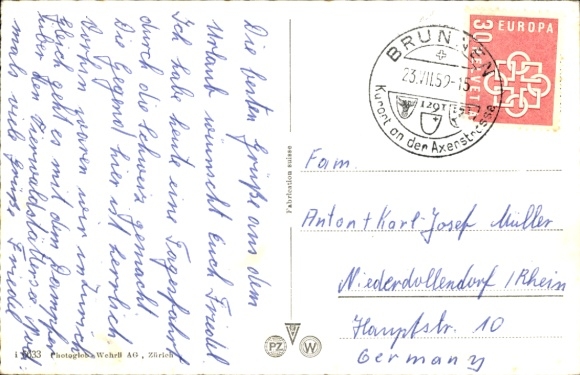 Die besten Grüße aus dem
Urlaub wünscht Euch Friedel.
Ich habe heute eine Tagesfahrt
durch die Schweiz gemacht
Die Gegend hier ist herrlich
Vorhin waren wir in Zürich
Gleich geht es mit dem Dampfer
über den Vierwaldstättersee
mals viele Grüße Friedel
i 6033 Photoglob-Wehrli AG , Zürich
Fabrication suisse
PZ
W
BRUNNEN
23.VII.59-15
1291
Kurort an der Axenstrasse
30 EUROPA
HELVETIA
Fam.
Anton + Karl-Josef Müller
Niederdollendorf /Rhein
Hauptstr. 10
Germany